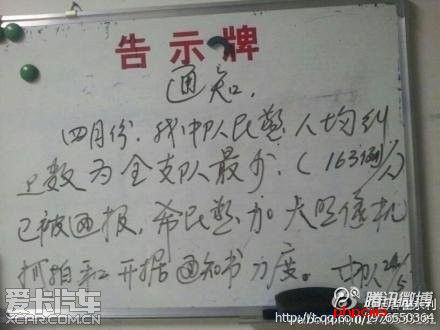 告示牌
通知.
四月份.我中队民警.人均纠
违数为全支队最少.(163例/人)
已被通报,希民警.加大照像机
抓拍和开据通知书力度。中队
爱卡汽车
XCAR.COM.CN
腾讯微博